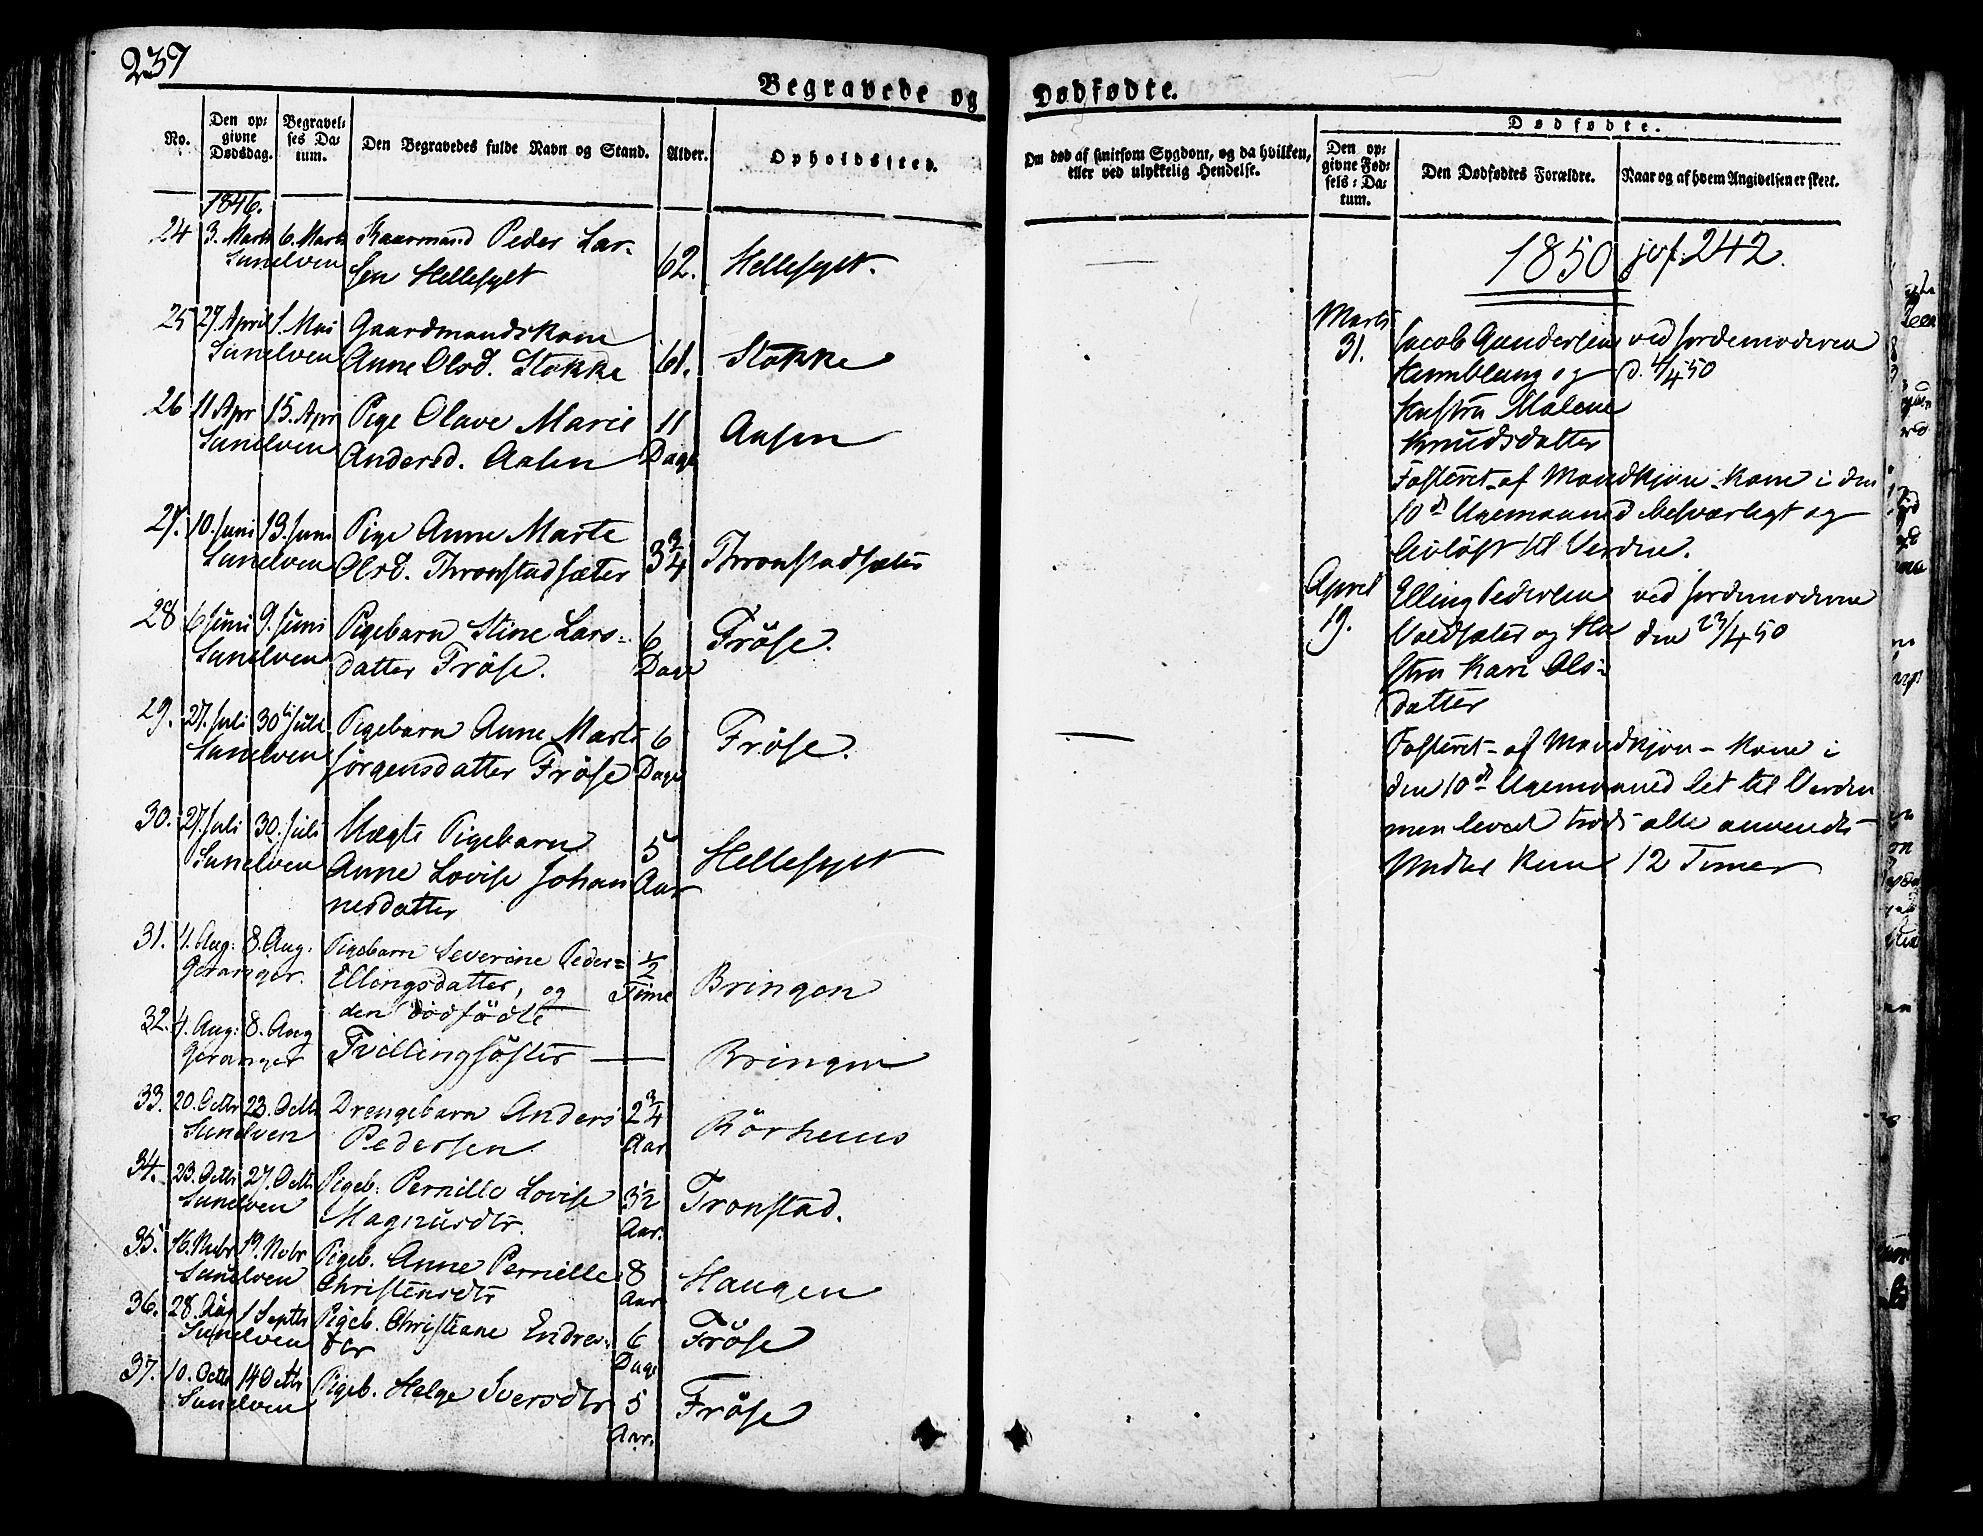 237
Begravede og Dødfødte.
No.
Den opgivne Dødsdag.
Begravelses Datum.
Den Begravedes fulde Navn og Stand.
Alder.
Opholdssted.
Om død af smitsom Sygdom, og da hvilken,
eller ved ulykkelig Hendelse.
Dødfødte.
Den opgivne Fødsels-Datum.
Den Dødfødtes Forældre.
Naar og af hvem Angivelsen er skeet.
1846.
24 3. Marts 6. Marts Kaarmand Peder Lar-
Sunelven sen Hellesylt 62. Hellesylt.
25 27 April 1. Mai Gaardmandskone
Sunelven Anne Olsd. Stokke 61. Stokke
26 11 Apr 15. Apr Pige Olave Marie 11
Sunelven Andersd. Aasen Dage Aasen
27. 10. Juni 13. Juni Pige Anne Marte
Sunelven Olsd. Thronstadsæter 3 3/4 Thronstadsæter
28 6 Juni 9. Juni Pigebarn Stine Lars- 6 Fröse.
Sunelven datter Fröse. Dage
29. 27. Juli 30 Juli Pigebarn Anne Marte 6 Fröse.
Sunelven Jörgensdatter Fröse Dage
30. 27 Juli 30. Juli Lægts Pigebarn 5
Sunelven Anne Lovise Johan Aar Hellesylt
nesdatter
31. 4. Aug: 8. Aug. Pigebarn Severine Peder= 1/2
Geranger. Ellingsdatter, og Time Bringen
den dödfödte
32. 4. Aug: 8. Aug
Geranger Tvillingsöster — Bringen
33. 20. Octbr 23. Octb Drengebarn Anders 2 3/4
Sunelven Pedersen Aar Rörhuus
34. 23. Octbr 27. Octb Pigeb. Pernille Lovise 3 1/2 Tronstad.
Sunelven Magnusdtr. Aar.
35. 16. Nvbr 19. Nvbr Pigeb. Anne Pernille 8 Haugen
Sunelven Christensdtr Aar
36. 28. Aug 1 Septbr Pigeb. Christiane Endres- 6 Fröse
Sunelven dtr Dage
37. 10. Octbr 14 Octbr Pigeb. Helge Iversdtr 5 Fröse
Sunelven Aar.
1850 jvf. 242.
Marts
31. Jacob Gundersen ved Jordemoderen
Humblung og d. 4/4 50
Hustru Malene
Knudsdatter
Fosteret af Mandkjøn kom i den
10d Ugemaaned besværligt og
livløst til Verden.
April
19. Elling Pedersen ved Jordemoderen
Voldsæter og Hu den 23/4 50
stru Kari Ols-
datter
Fosteret - af Mandkjøn - kom i
den 10d Ugemaaned let til Verden
men leved trods alle anvendte
Midler kun 12 Timer